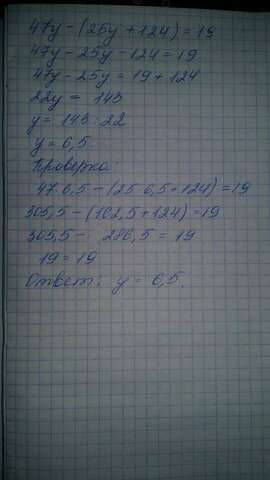 47y - (25y + 124) = 19
47y - 25y - 124 = 19
47y - 25y = 19 + 124
22y = 143
y = 143 : 22
y = 6,5.
Проверка:
47·6,5 - (25·6,5 + 124) = 19
305,5 - (162,5 + 124) = 19
305,5 - 286,5 = 19
19 = 19
Ответ: y = 6,5.